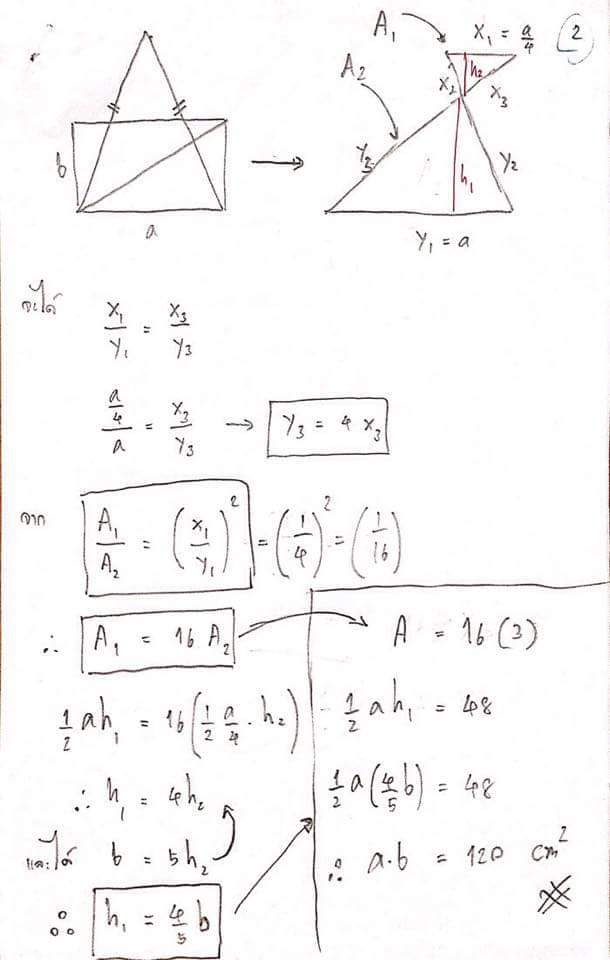 2
A₁
X₁ = a/4
A₂
h₂
X₂
X₃
b
Y₃
Y₂
h₁
a
Y₁ = a
จะได้
X₁/Y₁ = X₃/Y₃
(a/4)/a = X₃/Y₃ → Y₃ = 4 X₃
จาก
A₁/A₂ = (X₁/Y₁)² = (1/4)² = (1/16)
∴ A₁ = 16 A₂
½ah₁ = 16(½ a/4 · h₂)
∴ h₁ = 4h₂
และได้ b = 5h₂
∴ h₁ = 4/5 b
A = 16(3)
½ah₁ = 48
½a(4/5 b) = 48
∴ a·b = 120 cm²